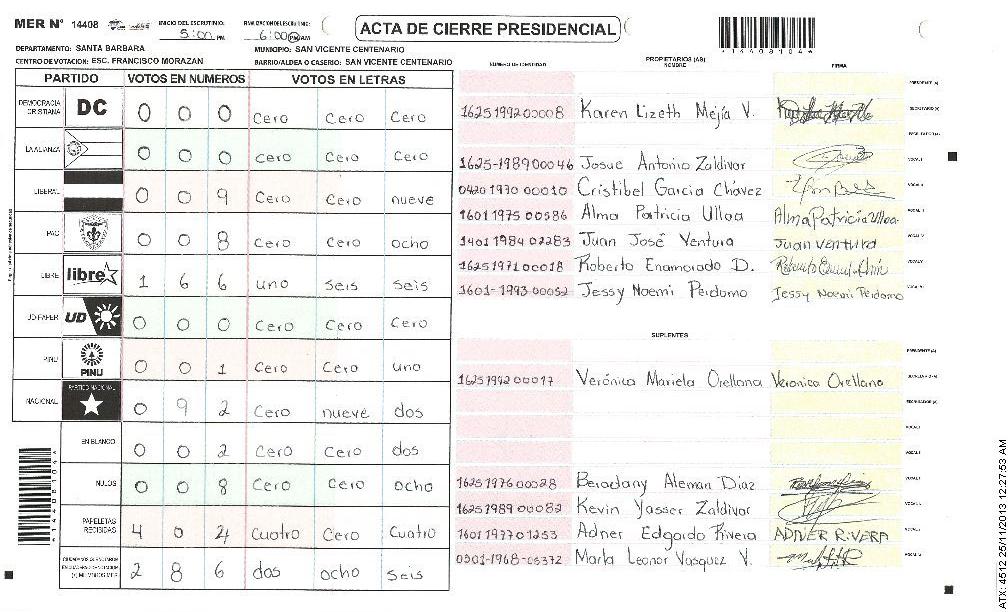 MER N° 14408 INICIO DEL ESCRUTINIO: 5:00 PM FINALIZACION DEL ESCRUTINIO: 6:00 PM AM
ACTA DE CIERRE PRESIDENCIAL
*1440810 4*
DEPARTAMENTO: SANTA BARBARA MUNICIPIO: SAN VICENTE CENTENARIO
CENTRO DE VOTACION: ESC. FRANCISCO MORAZAN BARRIO/ALDEA O CASERIO: SAN VICENTE CENTENARIO
PARTIDO VOTOS EN NUMEROS VOTOS EN LETRAS
DEMOCRACIA CRISTIANA DC 0 0 0 Cero Cero Cero
LA ALIANZA 0 0 0 Cero Cero Cero
LIBERAL 0 0 9 Cero Cero nueve
PAC 0 0 8 Cero Cero ocho
LIBRE libre 1 6 6 uno seis seis
UD FAPER UD 0 0 0 Cero Cero Cero
PINU PINU 0 0 1 Cero Cero uno
NACIONAL PARTIDO NACIONAL 0 9 2 Cero nueve dos
EN BLANCO 0 0 2 Cero Cero dos
NULOS 0 0 8 Cero Cero ocho
PAPELETAS RECIBIDAS 4 0 4 Cuatro Cero Cuatro
2 8 6 dos ocho seis
NUMERO DE IDENTIDAD PROPIETARIOS (AS) NOMBRE FIRMA
PRESIDENTE (A)
1625199200008 Karen Lizeth Mejía V. SECRETARIO (A)
ESCRUTADOR (A)
1625-198900046 Josue Antonio Zaldivar VOCAL I
0420 1970 00010 Cristibel Garcia Chávez VOCAL II
1601 1975 00586 Alma Patricia Ulloa Alma Patricia Ulloa
1401 1984 02283 Juan José Ventura Juan Ventura
1625197100018 Roberto Enamorado D.
1601-1993 00052 Jessy Noemi Perdomo Jessy Noemi Perdomo
SUPLENTES
PRESIDENTE (A)
1625199200017 Verónica Mariela Orellana Veronica Orellana SECRETARIO (A)
ESCRUTADOR (A)
VOCAL I
1625197600028 Beradany Aleman Diaz
1625 1989 00082 Kevin Yasser Zaldivar
1601197701253 Adner Edgardo Rivera ADNER RIVERA
0501-1968-05372 Marla Leonor Vasquez V.
*14408104*
ATX: 4512 25/11/2013 12:27:53 AM